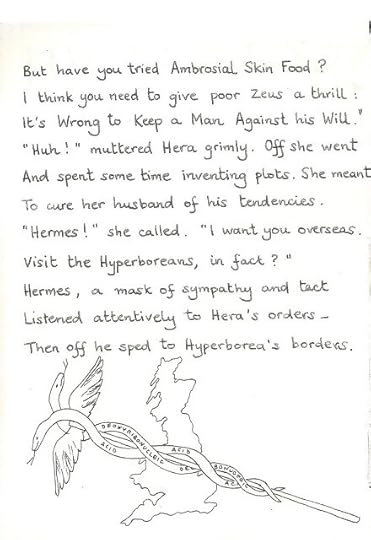 But have you tried Ambrosial Skin Food ?
I think you need to give poor Zeus a thrill :
It's Wrong to Keep a Man Against his Will."
"Huh!" muttered Hera grimly. Off she went
And spent some time inventing plots. She meant
To cure her husband of his tendencies.
"Hermes!" she called. "I want you overseas.
Visit the Hyperboreans, in fact ? "
Hermes, a mask of sympathy and tact
Listened attentively to Hera's orders –
Then off he sped to Hyperborea's borders.
DEOXYRIBONUCLEIC
ACID
ACID
DE